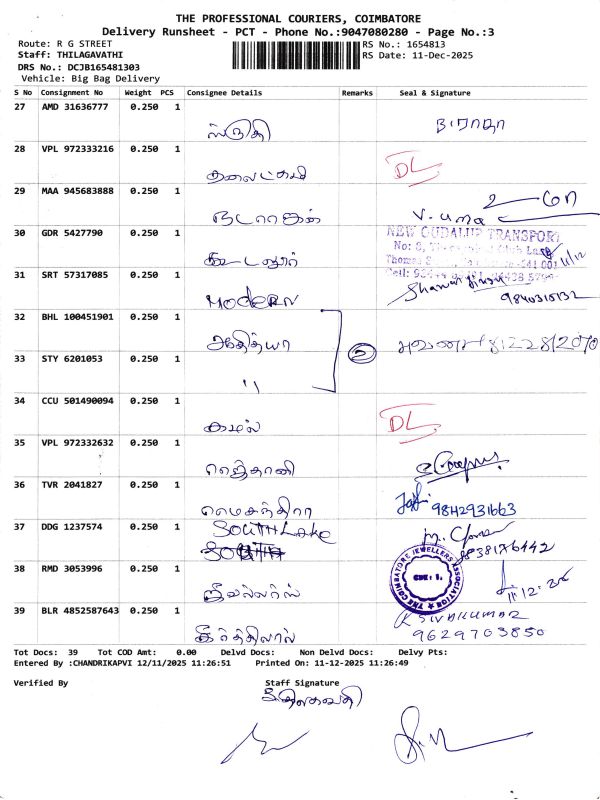 THE PROFESSIONAL COURIERS, COIMBATORE
Delivery Runsheet - PCT - Phone No.:9047080280 - Page No.:3
Route: R G STREET
RS No.: 1654813
Staff: THILAGAVATHI
RS Date: 11-Dec-2025
DRS No.: DCJB165481303
Vehicle: Big Bag Delivery
S No Consignment No Weight PCS Consignee Details Remarks Seal & Signature
27 AMD 31636777 0.250 1
ஸ்ருதி
28 VPL 972333216 0.250 1
DL
29 MAA 945683888 0.250 1
நடராஜன் V. uma
30 GDR 5427790 0.250 1
NEW GUDALUR TRANSPORT
கூடலூர்
31 SRT 57317085 0.250 1
MODERN 9840315132
32 BHL 100451901 0.250 1
அதித்யா 2
33 STY 6201053 0.250 1
"
34 CCU 501490094 0.250 1
கமல் DL
35 VPL 972332632 0.250 1
36 TVR 2041827 0.250 1
9842931663
37 DDG 1237574 0.250 1
SOUTH Lake
38 RMD 3053996 0.250 1
THE COIMBATORE JEWELLERS ASSOCIATION
CBE: 1.
39 BLR 4852587643 0.250 1
K SIVAKUMAR
கீர்த்திலால் 9629703850
Tot Docs: 39 Tot COD Amt: 0.00 Delvd Docs: Non Delvd Docs: Delvy Pts:
Entered By :CHANDRIKAPVI 12/11/2025 11:26:51 Printed On: 11-12-2025 11:26:49
Verified By Staff Signature